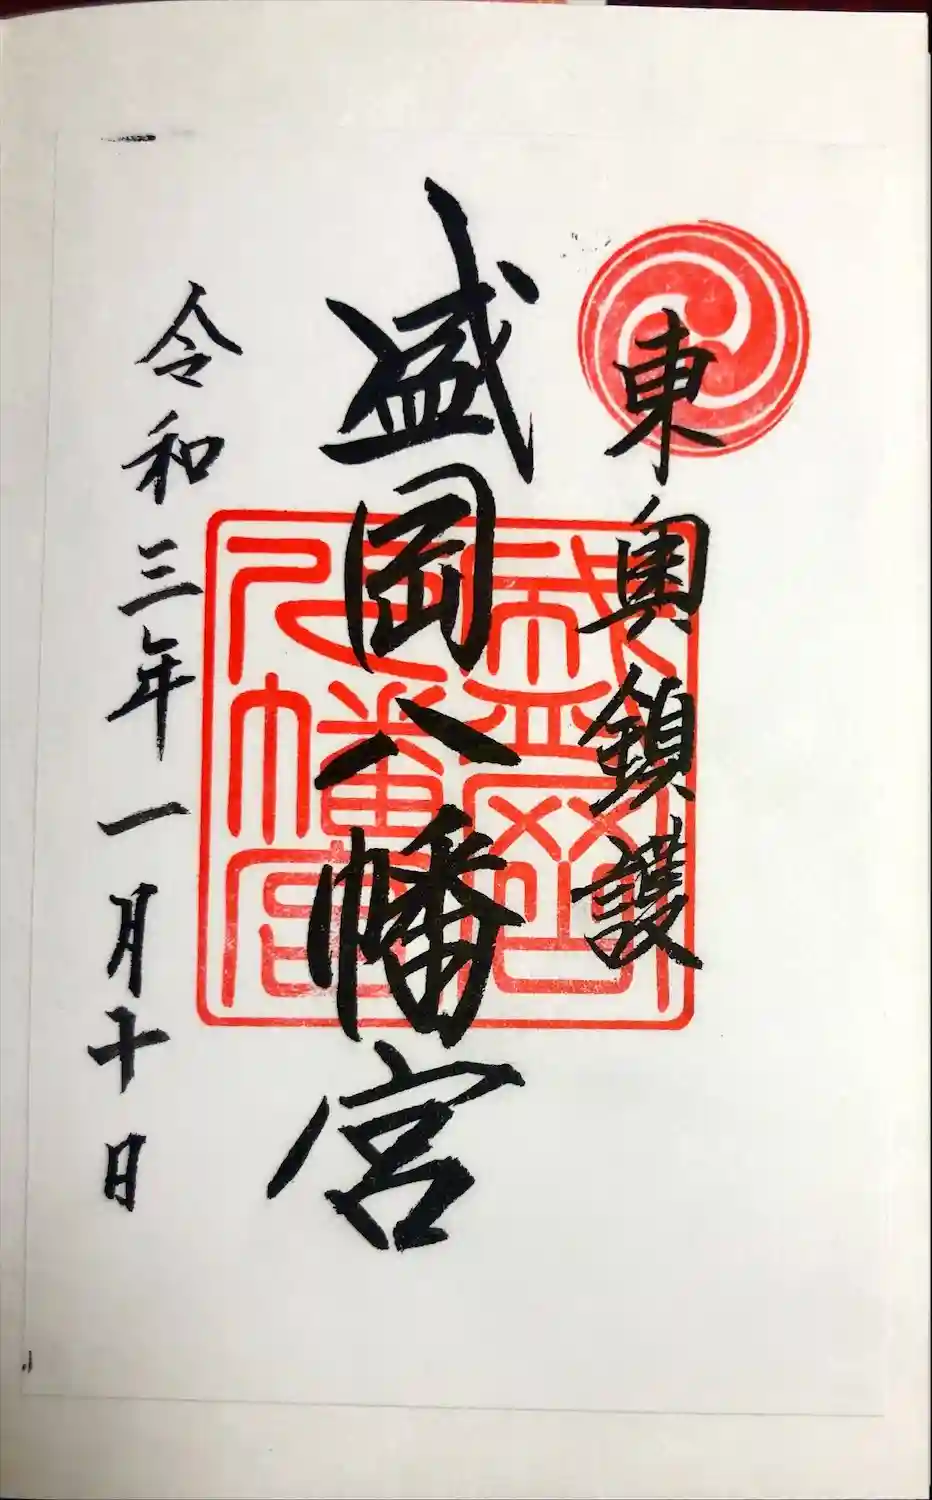 東奥鎮護
盛岡八幡宮
令和三年一月十日
盛岡
八幡宮